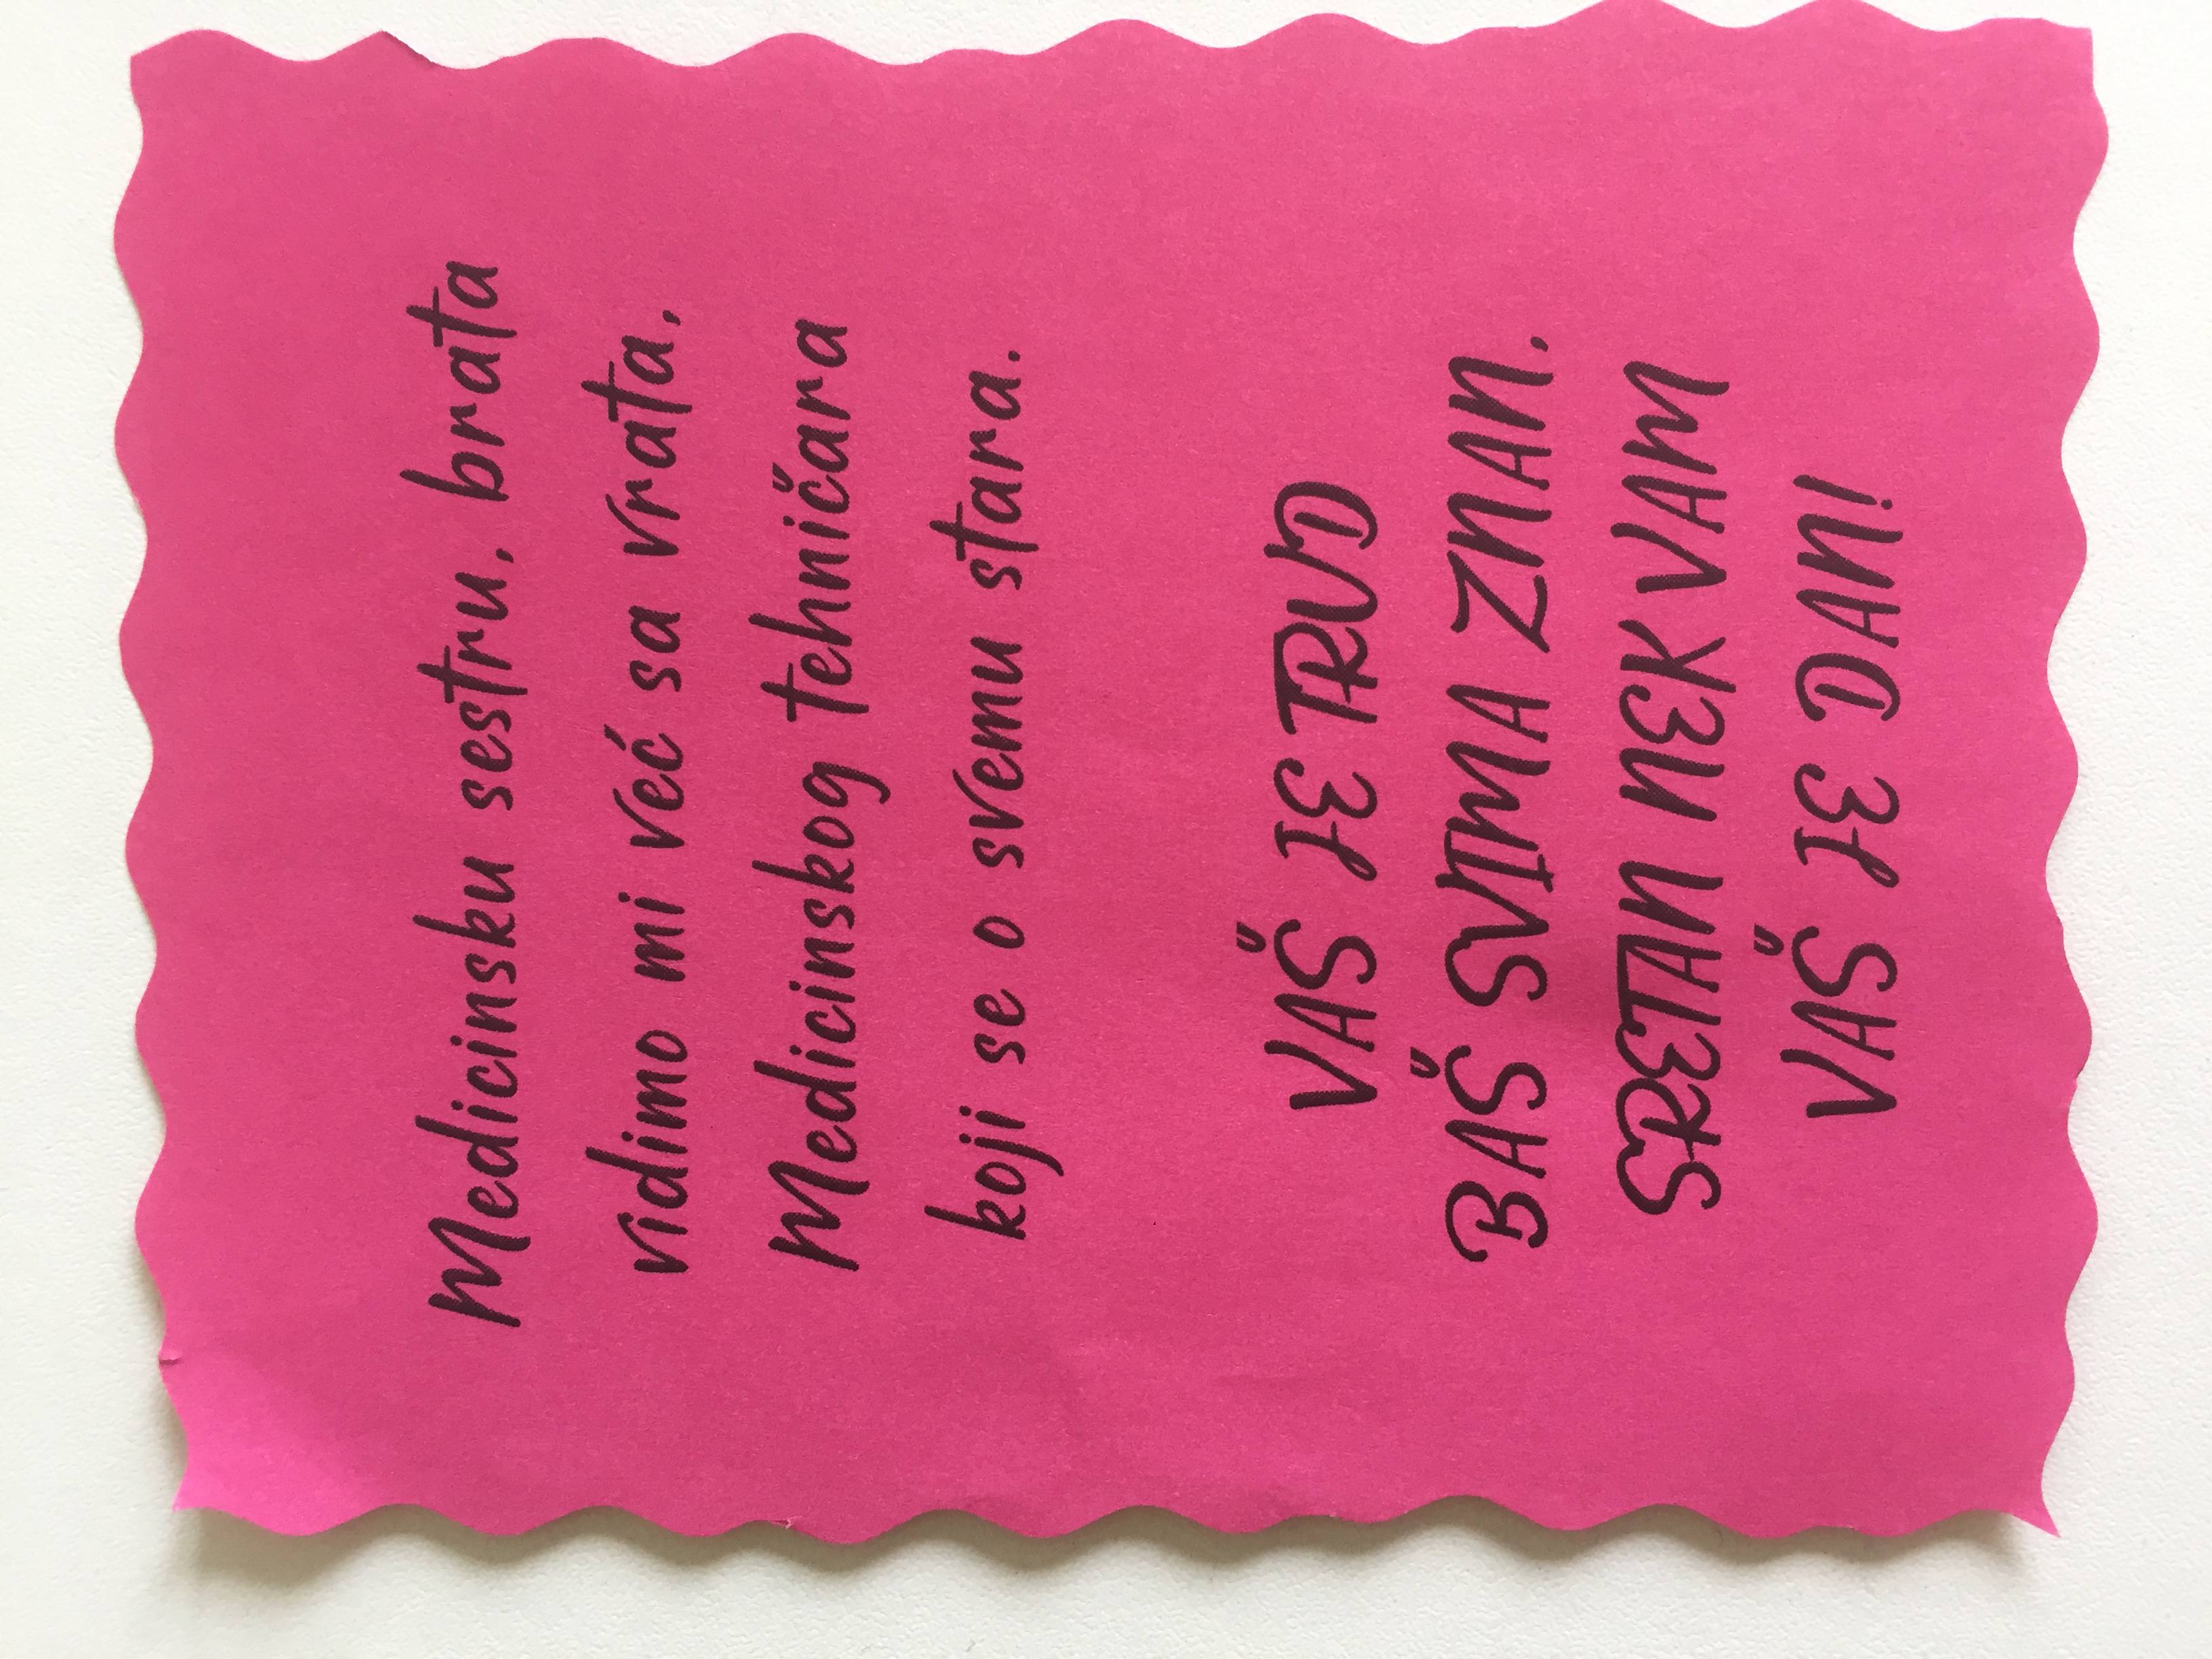 Medicinsku sestru, brata
vidimo mi već sa vrata,
Medicinskog tehničara
koji se o svemu stara.
VAŠ JE TRUD
BAŠ SVIMA ZNAN,
SRETAN NEK VAM
VAŠ JE DAN!